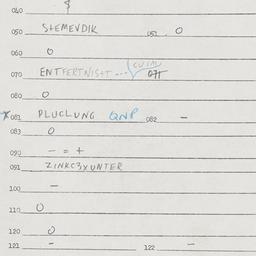 040
050 STEMEVDIK 052 . O
060 O
070 ENTFERTNIST --- 071
080 O
081 PLUCLUNG QNP 082 -
083 O
090 - = +
091 ZINKC3XUNTER
100 -
110 O
120 O
121 - 122 -